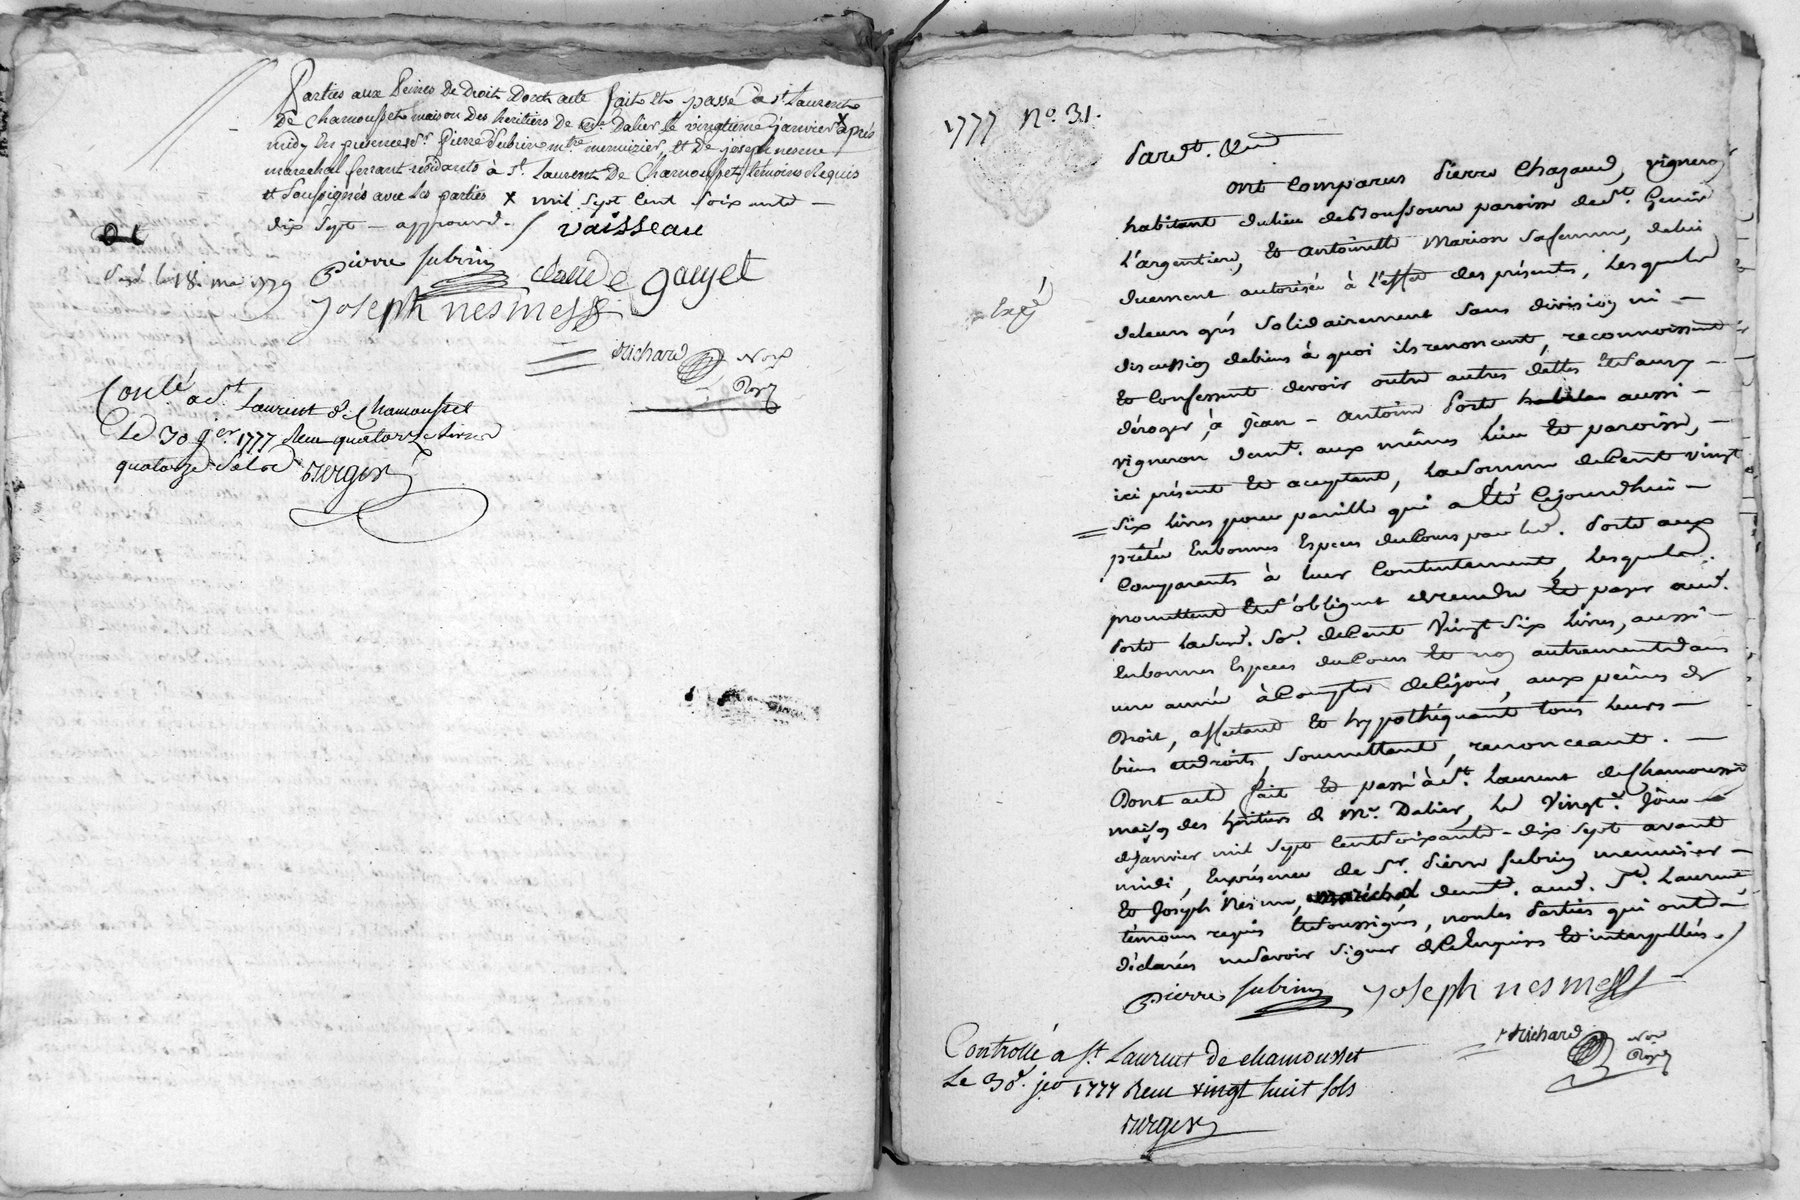 Parties aux Peines de Droit Dont acte fait et passé a St Laurent
De Chamousset maison Des heritiers De Me Dalier le vingtieme janvier x après
midy En presence de Sr Pierre Subrin mtre menuizier, et De joseph nesme
marechal ferrant residants à St Laurent De Chamousset temoins Requis
et soussignés avec les parties x mil sept cent soixante
dix sept - approuvé. vaisseau
pierre subrin claude gouyet
le 18 mai 1779
joseph nesme
Richard Nore
Roy
Conlé a St Laurent de Chamousset
Le 30 jer 1777 Reçu quatorze livres
quatorze sols
1777 No. 31.
Pardt.
ont Comparus Pierre Chazaud, vigneron
habitant du lieu de paroisse de St. Genis
L'argentiere, et antoinette Marion sa femme, de lui
duement autorisée à l'effet des présentes, Lesquels
de leurs grés solidairement sans division ni
discussion de biens à quoi ils renoncent, reconnoissent
et Confessent devoir outre autres dettes et sans y
déroger, à jean - antoine Porte habitan aussi
vigneron demt. aux mêmes lieu et paroisse,
ici présent et aceptant, la somme de Cent vingt
six livres pour pareille qui a Eté Cejourdhui
prêtée En bonnes Espèces du Cours par led. Porte aux
Comparants à leur Contentement, Lesquels
promettent et s'obligent de rendre et payer aud.
Porte lad. So. de Cent Vingt Six livres, aussi
En bonnes Espèces du Cours et non autrement dans
une année à Compter de Cejour, aux peines de
Droit, affectant et hypothéquant tous leurs
biens et droits, soumettant, renonceant.
Dont acte fait et passé à St. Laurent de Chamousset
maison des héritiers de Me. Dalier, Le Vingt. jour
de janvier mil sept Cent soixante-dix sept avant
midi, En présence de Sr. Pierre Subrin menuisier
et Joseph Nesme, maréchal demt. aud. St. Laurent
témoins requis et soussignés, non les Parties qui ont
déclarées ne savoir signer de Ce Enquises et interpellées.
pierre subrin joseph nesme
Richard Nore
Roy
Controllé a St Laurent de chamousset
Le 30e. jer 1777 Reçu vingt huit sols